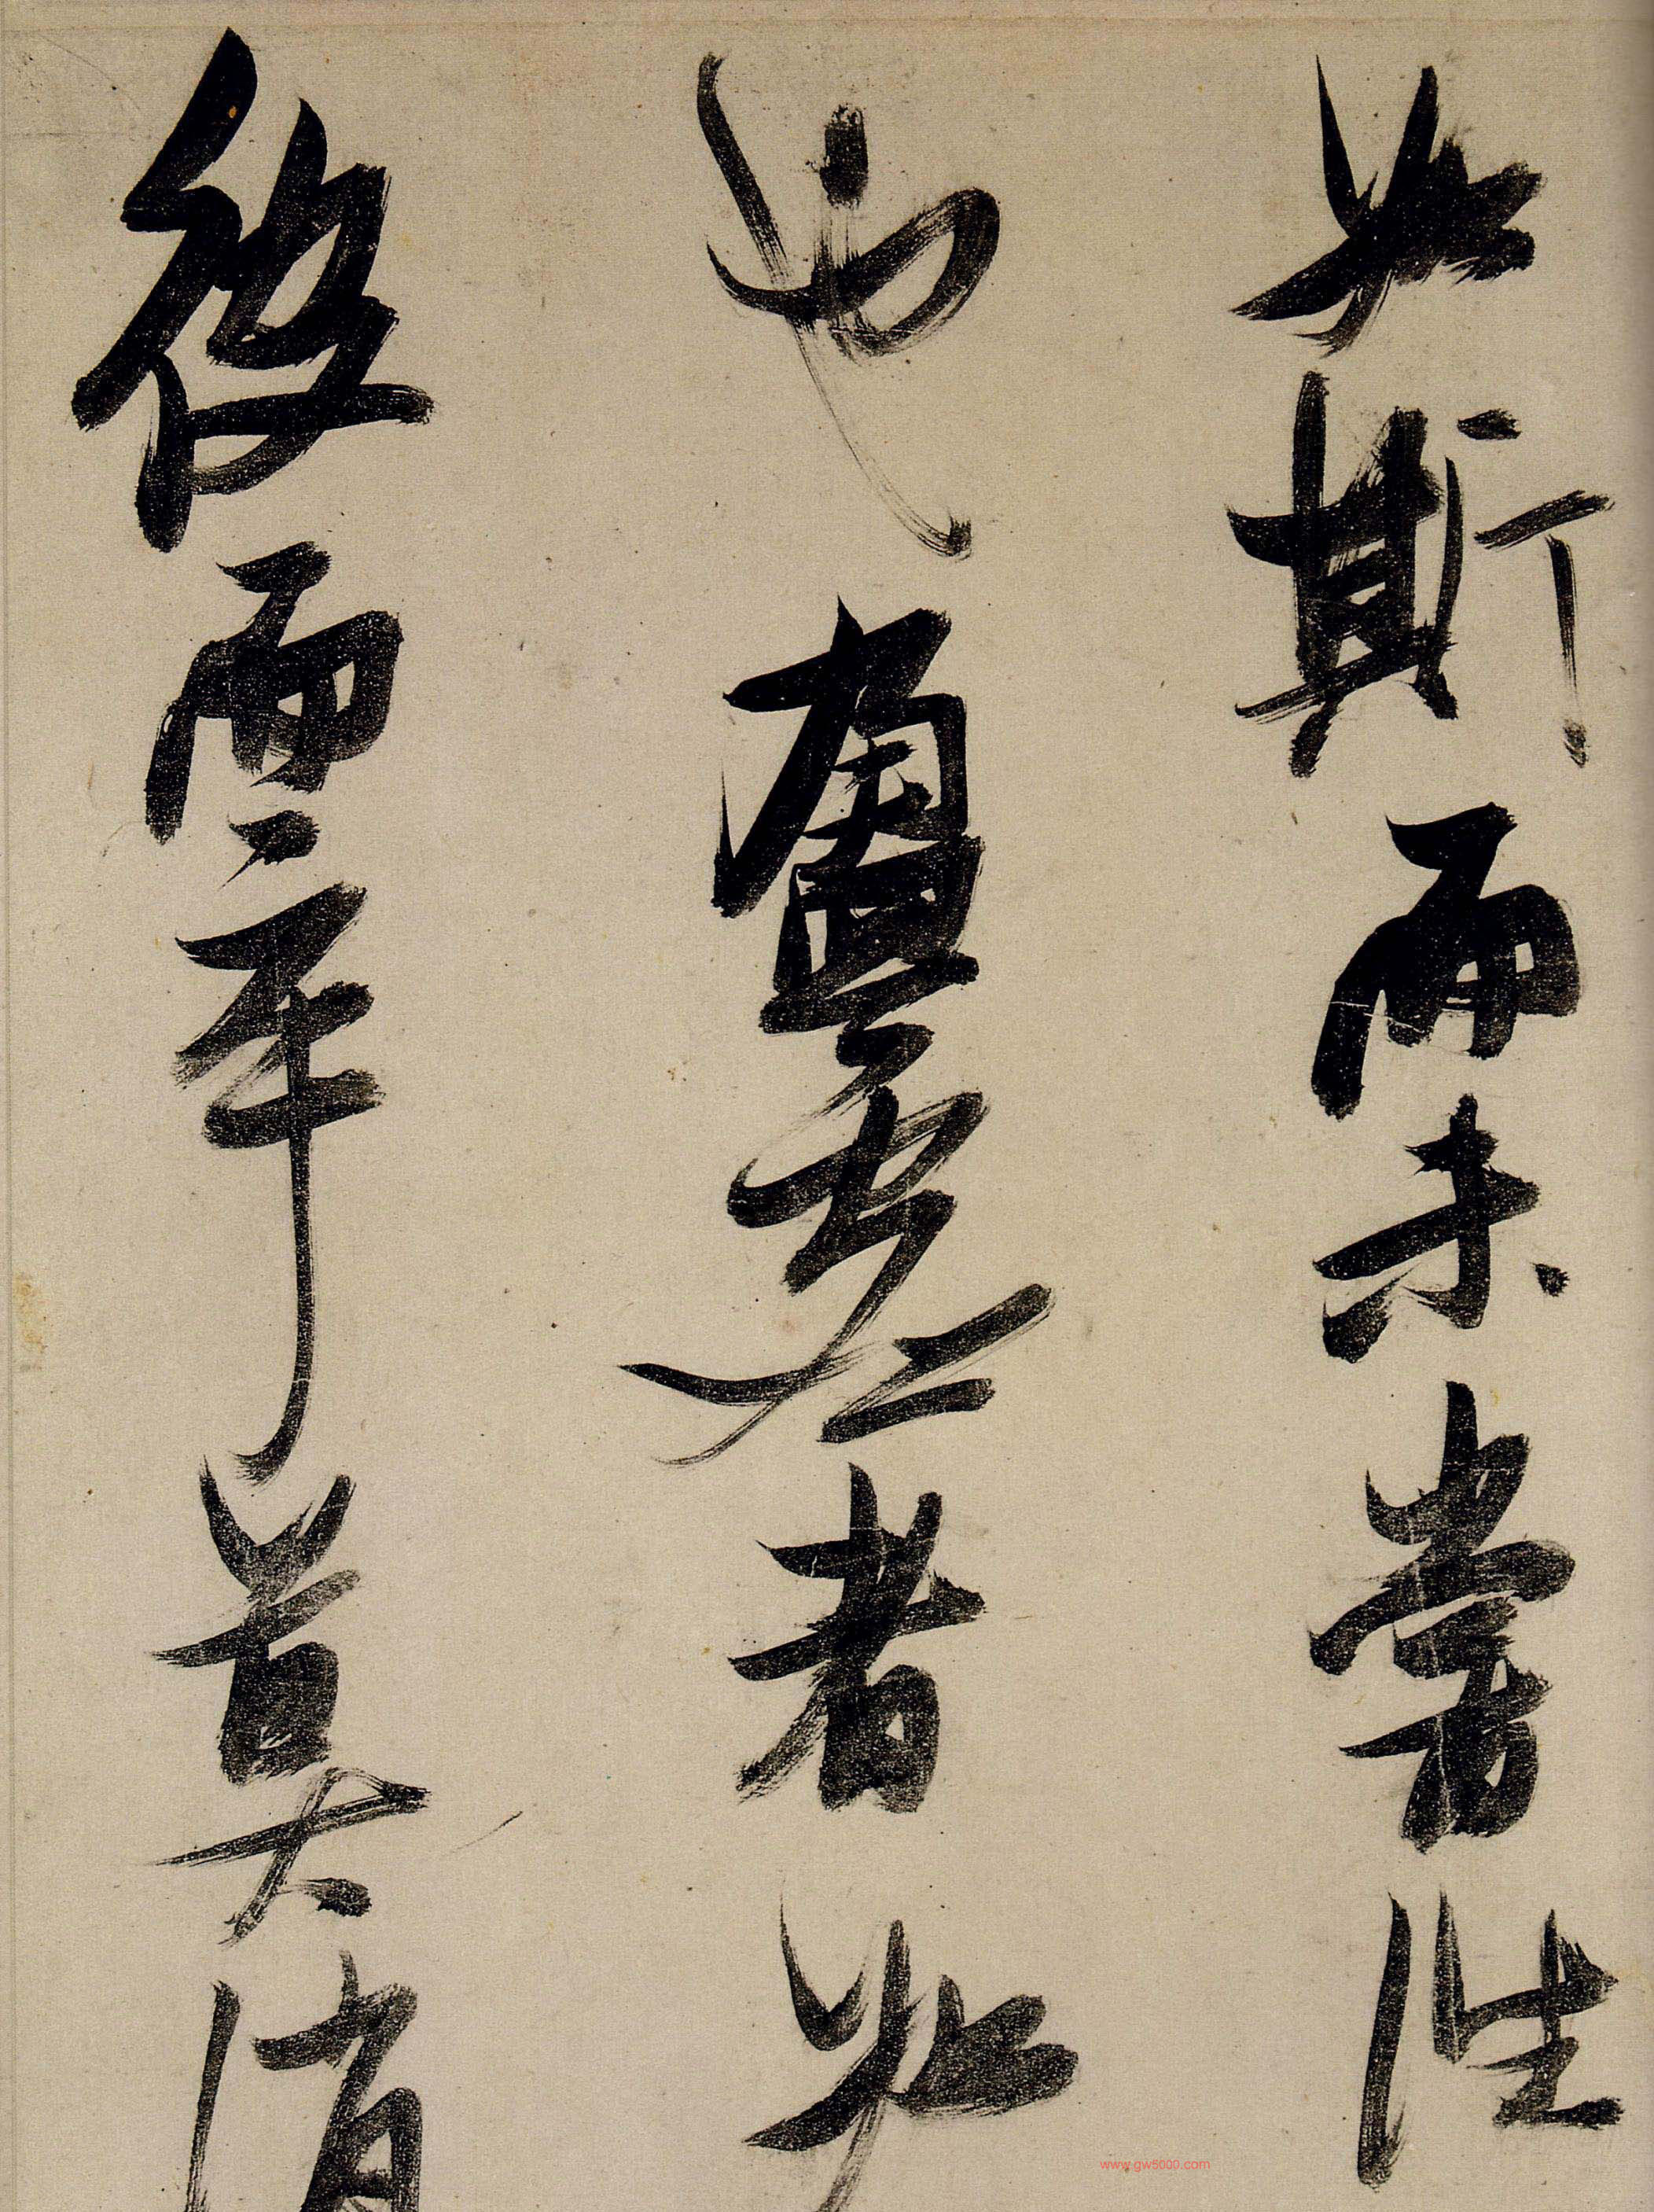 如斯而未嘗往
也盈虛者如
彼而卒莫消
www.gw5000.com